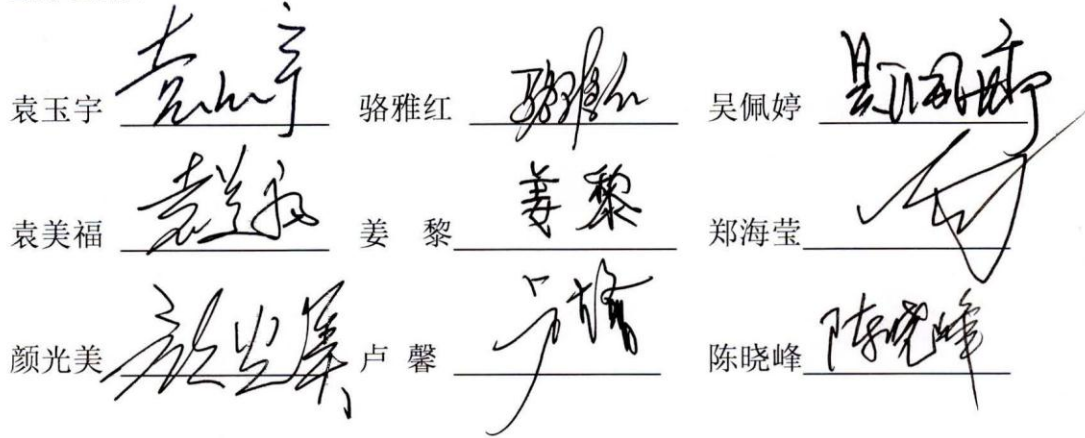 袁玉宇 袁玉宇 骆雅红 骆雅红 吴佩婷 吴佩婷
袁美福 袁美福 姜 黎 姜黎 郑海莹
颜光美 颜光美 卢 馨 卢馨 陈晓峰 陈晓峰